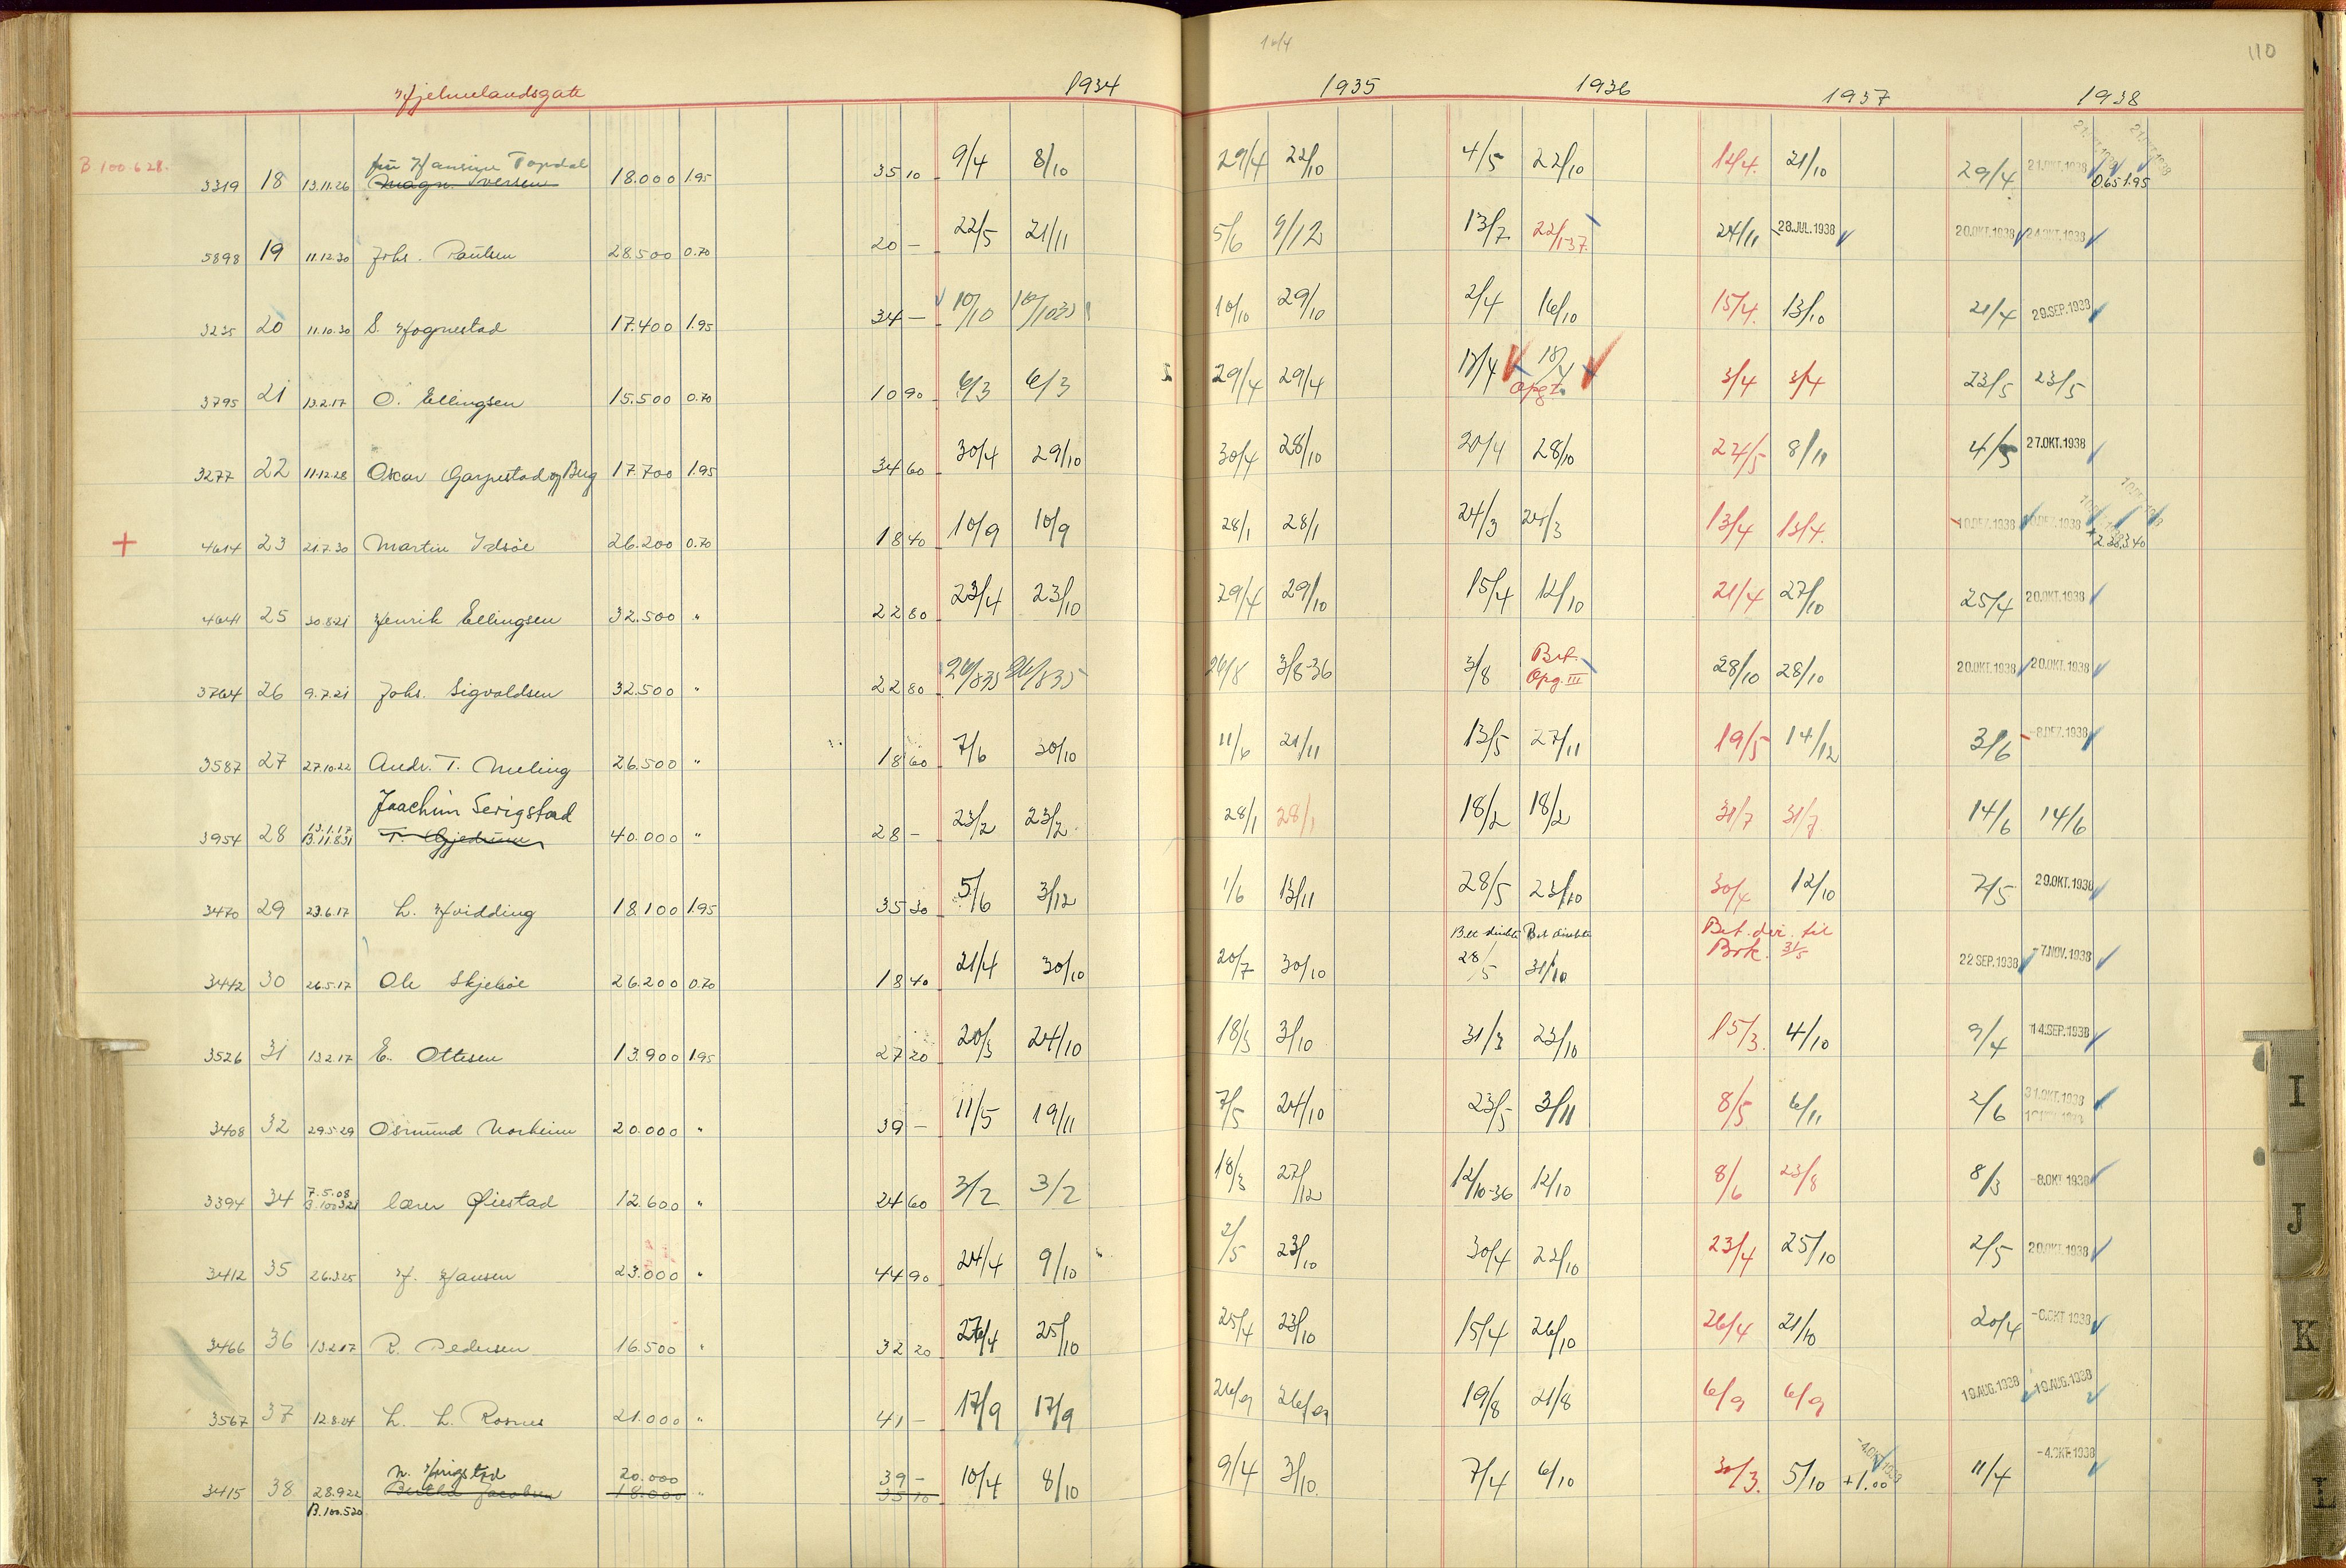 10/4
110
Hjelmelandsgate 1934 1935 1936 1937 1938
B.100.628.
frü Hansine Topdal
3319 18 13.11.26 Magn. Iversen 18.000 1.95 35 10 9/4 8/10 29/4 22/10 4/5 22/10 12/4. 21/10 29/4 21.OKT.1938 0.65 1.95
5898 19 11.12.30 Johs. Paulsen 28.500 0.70 20 – 22/5 21/11 5/6 9/12 13/7 22/1-37. 24/11 28.JUL.1938 20.OKT.1938 24.OKT.1938
3235 20 11.10.30 S. Hognestad 17.400 1.95 34 – 10/10 10/10 35 10/10 29/10 2/4 16/10 15/4. 13/10 21/4 29.SEP.1938
3795 21 13.2.17 O. Ellingsen 15.500 0.70 10 90 6/3 6/3 29/4 29/4 17/4 18/4 3/4 3/4 23/5 23/5
Opgt.
3277 22 11.12.28 Oskar Garpestad og Berg 17.700 1.95 34 60 30/4 29/10 30/4 28/10 20/4 28/10 22/5 8/11 4/5 27.OKT.1938
+ 4614 23 21.7.30 Martin Idsöe 26.200 0.70 18 40 10/9 10/9 28/1 28/1 24/3 24/3 13/4 13/4. 10.DEZ.1938 10.DEZ.1938 2.38 3.40
4641 25 30.8.21 Henrik Ellingsen 32.500 " 22 80 23/4 23/10 29/4 29/10 15/4 12/10 21/4 27/10 25/4 20.OKT.1938
3764 26 9.7.21 Johs. Sigvaldsen 32.500 " 22 80 26/8 35 26/8 35 26/8 3/8-36 3/8 Bet. Opg. III 28/10 28/10 20.OKT.1938 20.OKT.1938
3587 27 27.10.22 Andr. T. Meling 26.500 " 18 60 7/6 30/10 11/6 21/11 13/5 27/11 19/5 14/12 3/6 -8.DEZ.1938
Joachim Serigstad
3954 28 13.1.17 B.11.831 T. Gjedrem 40.000 " 28 – 23/2 23/2. 28/1 28/1 18/2 18/2 31/7 31/7 14/6 14/6
3470 29 23.6.17 L. Hvidding 18.100 1.95 35 30 5/6 3/12 1/6 13/11 28/5 23/10 30/4 12/10 7/5 29.OKT.1938
Bet direkte Bet direkte Bet. dir. til
3442 30 26.5.17 Ole Skjebøe 26.200 0.70 18 40 21/4 30/10 20/7 30/10 28/5 31/10 Brk. 31/5 22 SEP.1938 -7.NOV.1938
3526 31 13.2.17 E. Ottesen 13.900 1.95 27 20 20/3 24/10 18/3 3/10 31/3 23/10 15/3. 4/10 9/4 14.SEP.1938
3408 32 29.5.29 Osmund Norheim 20.000 " 39 – 11/5 19/11 7/5 24/10 23/5 3/11 8/5 6/11 2/6 31.OKT.1938
3394 34 7.5.08 B.100321 lærer Øiestad 12.600 " 24 60 3/2 3/2 18/3 27/12 12/10-36 12/10 8/6 23/8 8/3 -8.OKT 1938
3412 35 26.3.25 H. Hansen 23.000 " 44 90 24/4 9/10 2/5 23/10 30/4 22/10 23/4 25/10 2/5 20.OKT.1938
3466 36 13.2.17 R. Pedersen 16.500 " 32 20 27/4 25/10 25/4 23/10 15/4 26/10 26/4 21/10 20/4 -6.OKT 1938
3567 37 12.8.24 L. L. Rosnes 21.000 " 41 – 17/9 17/9 26/9 26/9 19/8 21/8 6/9 6/9 19.AUG.1938 19.AUG.1938
N. Hrigstad 20.000 39 –
3415 38 28.9.22 Bertha Jacobsen 18.000 " 35 10 10/4 8/10 9/4 3/10. 7/4 6/10 30/3. 5/10 +1.00 11/4 -4.OKT.1938
B.100.520
I
J
K
L